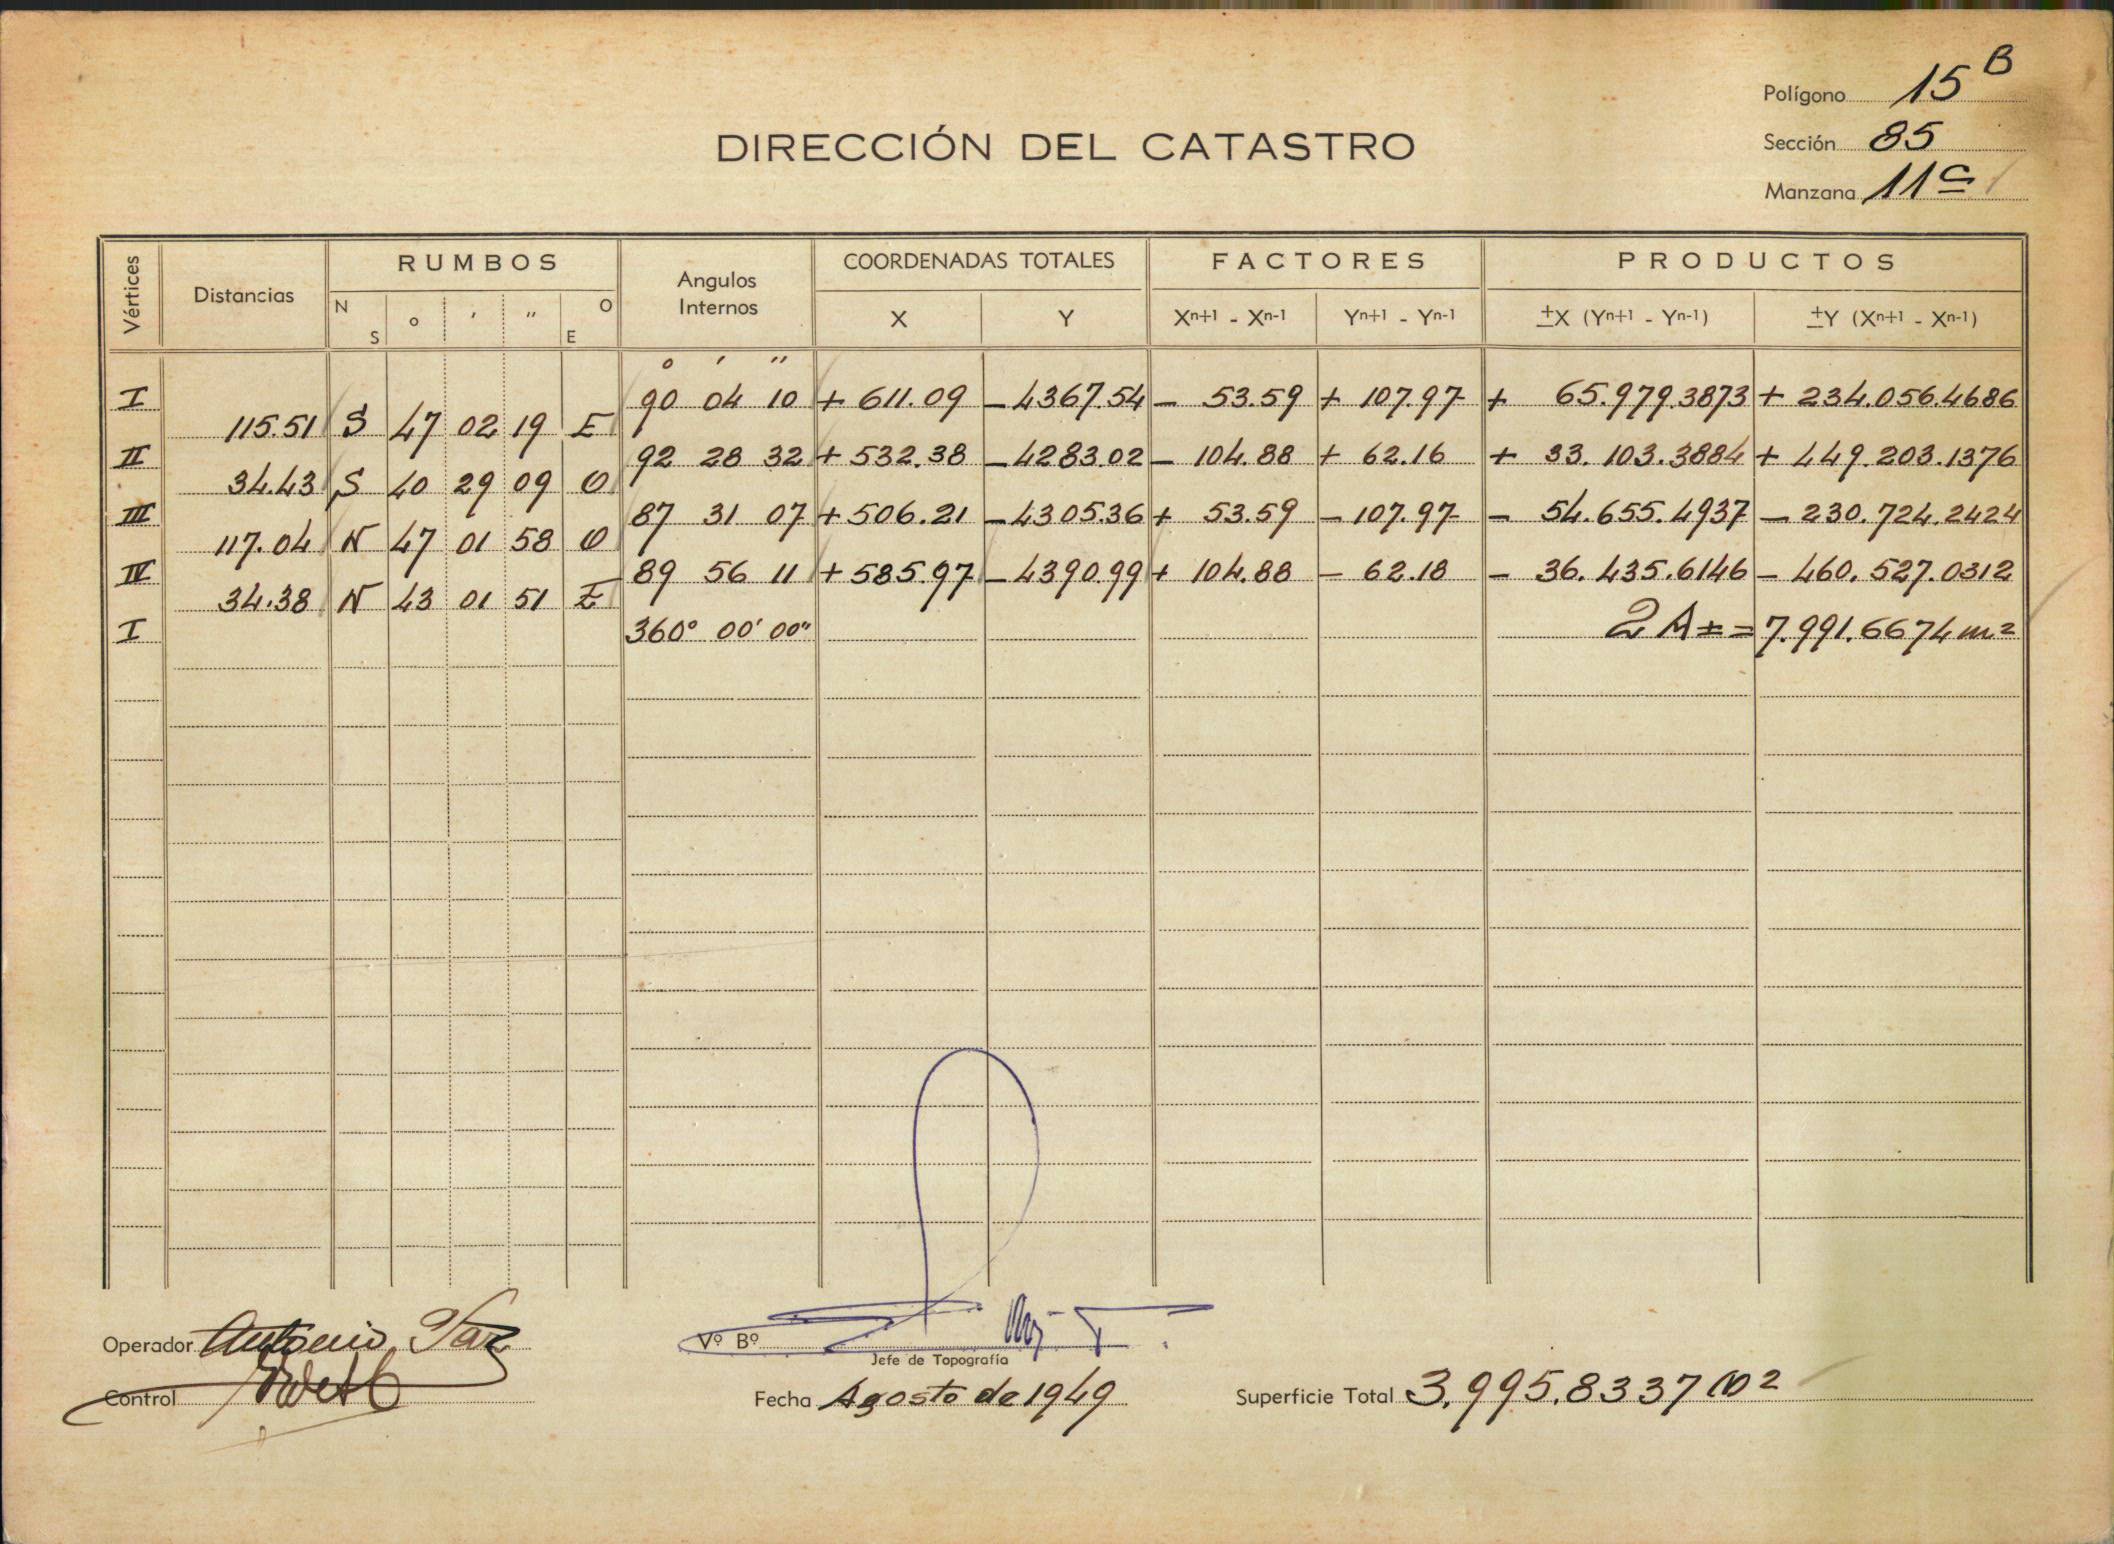 Polígono 15 B
DIRECCIÓN DEL CATASTRO
Sección 85
Manzana 11 C
Vértices Distancias RUMBOS Angulos Internos COORDENADAS TOTALES FACTORES PRODUCTOS
N S ° ' " O E X Y Xn+1 - Xn-1 Yn+1 - Yn-1 ±X (Yn+1 - Yn-1) ±Y (Xn+1 - Xn-1)
° ' "
I 90 04 10 + 611.09 - 4367.54 - 53.59 + 107.97 + 65.979.3873 + 234.056.4686
115.51 S 47 02 19 E
II 92 28 32 + 532.38 - 4283.02 - 104.88 + 62.16 + 33.103.3884 + 449.203.1376
34.43 S 40 29 09 O
III 87 31 07 + 506.21 - 4305.36 + 53.59 - 107.97 - 54.655.4937 - 230.724.2424
117.04 N 47 01 58 O
IV 89 56 11 + 585.97 - 4390.99 + 104.88 - 62.18 - 36.435.6146 - 460.527.0312
34.38 N 43 01 51 E
I 360° 00' 00" 2 A ± = 7.991.6674 m²
Operador Antonio
Vº Bº
Jefe de Topografía
Control
Fecha Agosto de 1949
Superficie Total 3.995.8337 m²